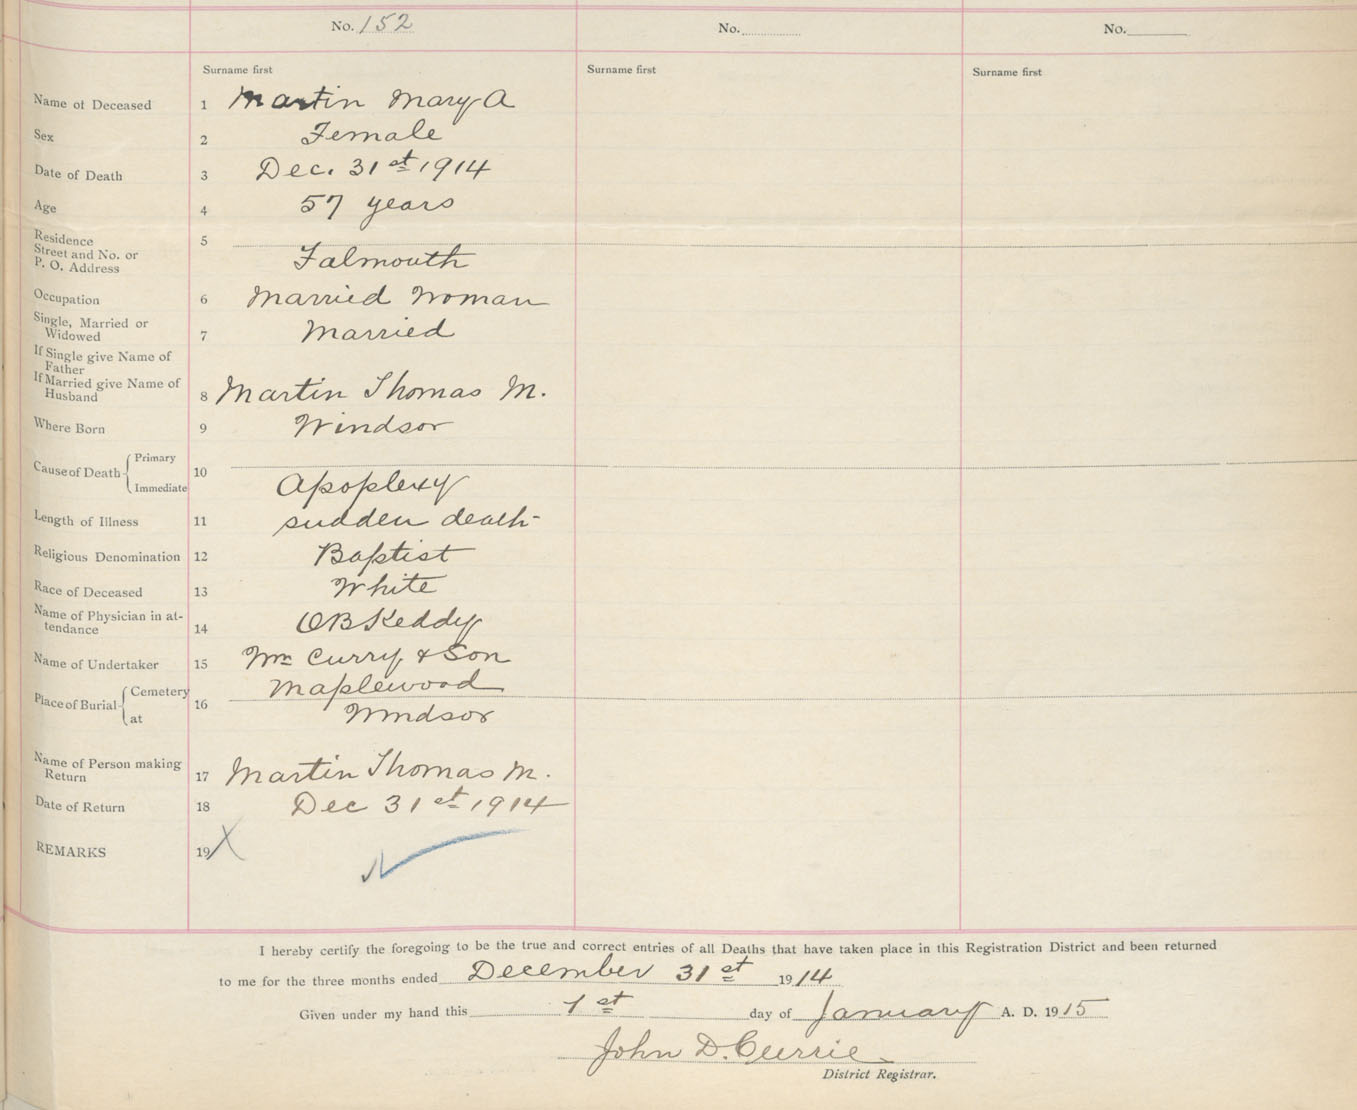 No. 152 No. No.
Surname first Surname first Surname first
Name of Deceased 1 Martin Mary A
Sex 2 Female
Date of Death 3 Dec. 31st 1914
Age 4 57 years
Residence 5
Street and No. or
P. O. Address Falmouth
Occupation 6 Married Woman
Single, Married or
Widowed 7 Married
If Single give Name of
Father
If Married give Name of
Husband 8 Martin Thomas M.
Where Born 9 Windsor
Primary
Cause of Death 10
Immediate Apoplexy
Length of Illness 11 sudden death
Religious Denomination 12 Baptist
Race of Deceased 13 White
Name of Physician in at-
tendance 14 O B Keddy
Name of Undertaker 15 Wm Curry & Son
Cemetery Maplewood
Place of Burial 16
at Windsor
Name of Person making
Return 17 Martin Thomas M.
Date of Return 18 Dec 31st 1914
REMARKS 19 X
I hereby certify the foregoing to be the true and correct entries of all Deaths that have taken place in this Registration District and been returned
to me for the three months ended December 31st 1914
Given under my hand this 1st day of January A. D. 1915
John D. Currie
District Registrar.